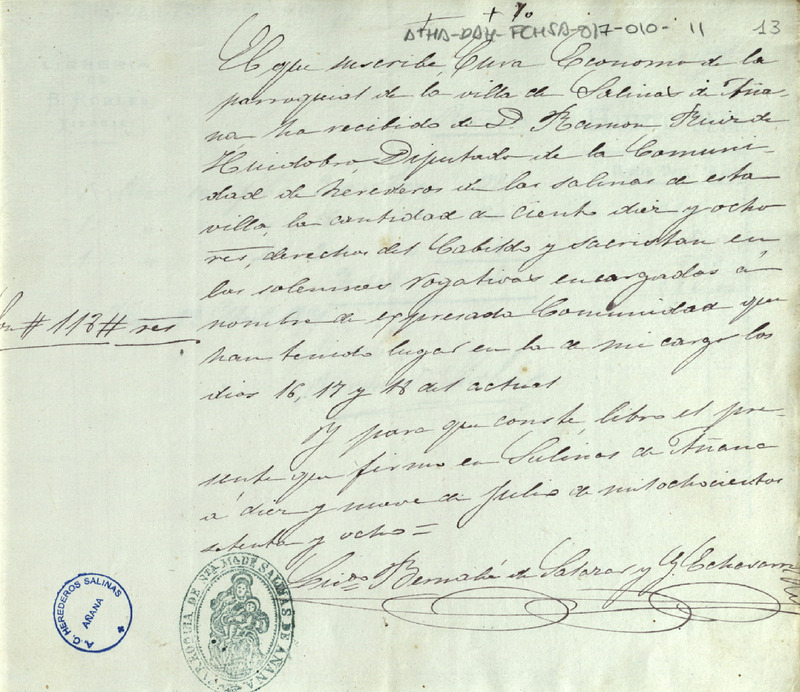 ATHA-DAH-FCHSA-017-010-11
13
El que suscribe Cura Economo de la
parroquial de la villa de Salinas de Aña-
na, ha recibido de D. Ramon Ruiz de
Huidobro Diputado de la Comuni-
dad de herederos de las salinas de esta
villa, la cantidad de ciento diez y ocho
res, derechos del Cabildo y sacristan en
las solemnes rogativas encargadas á
nombre de expresada Comunidad que
han tenido lugar en la de mi cargo los
dias 16, 17 y 18 del actual
Son #118# res
Y para que conste, libro el pre-
sente que firmo en Salinas de Añana
á diez y nueve de Julio de mil ochocientos
setenta y ocho=
Licdo Bernabé de Salazar y
PARROQUIA DE NTA. MA. DE SALINAS DE AÑANA
A. C. HEREDEROS SALINAS
AÑANA